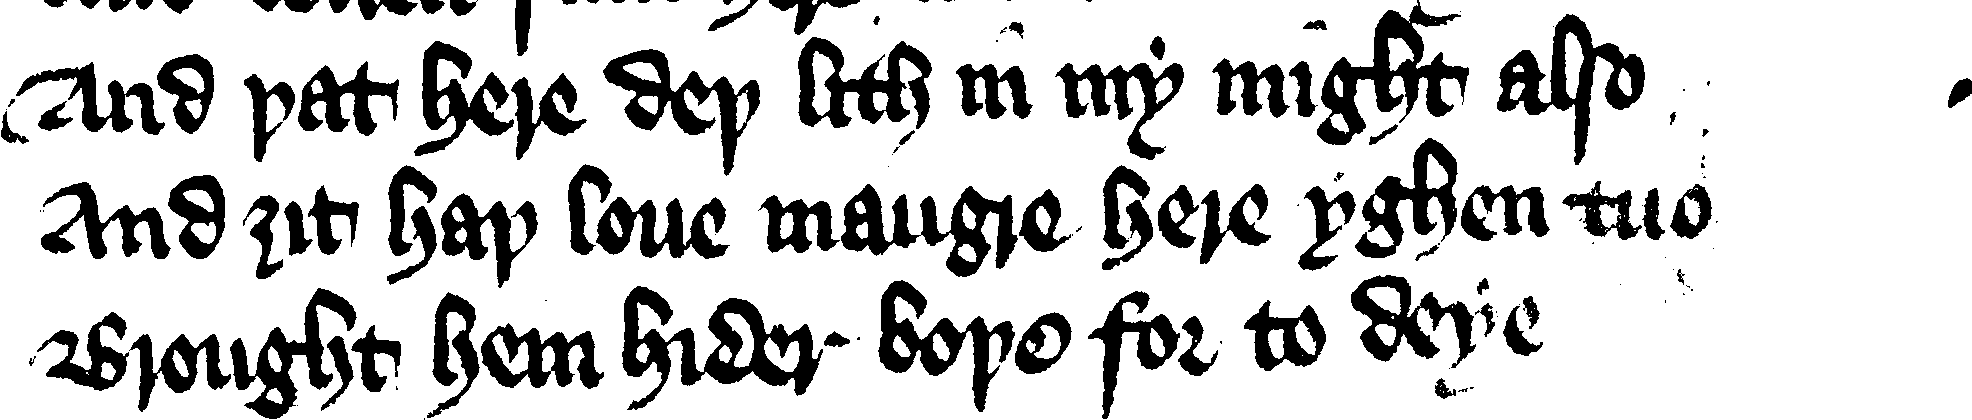 And þat here deþ lith in my might also
And ȝit haþ loue maugre here yghen tuo
Brought hem hider boþe for to deye